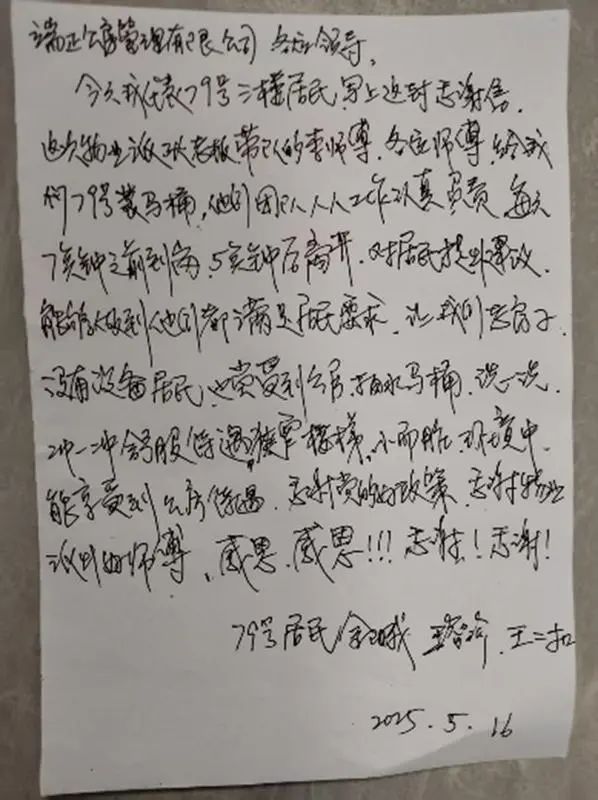 端正公房管理有限公司 各位领导,
今天我代表79号三楼居民,写上这封感谢信.
这次物业派工老板带队的李师傅.各位师傅,给我
们79号装马桶,他们团队人人工作认真负责,每天
7点钟之前到岗,5点钟后离开.对居民提出建议.
能够做到他们都满足居民要求.让我们老房子.
没有设备居民,也享受到公房抽水马桶.洗一洗.
冲一冲舒服待遇,小而 环境中.
能享受到公房待遇.感谢党的好政策.感谢物业
派出的师傅,感恩.感恩!!!感谢!感谢!
79号居民 王二扣
2025.5.16